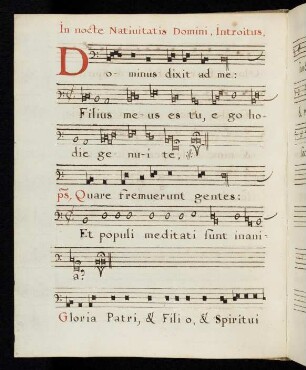 In nocte Natiuitatis Domini, Introitus,
Do- minus dixit ad me:
Filius me-us es tu, e go ho-
die ge nu-i te,
ps, Quare fremuerunt gentes:
Et populi meditati sunt inani-
a?
Gloria Patri, & Fili o, & Spiritui